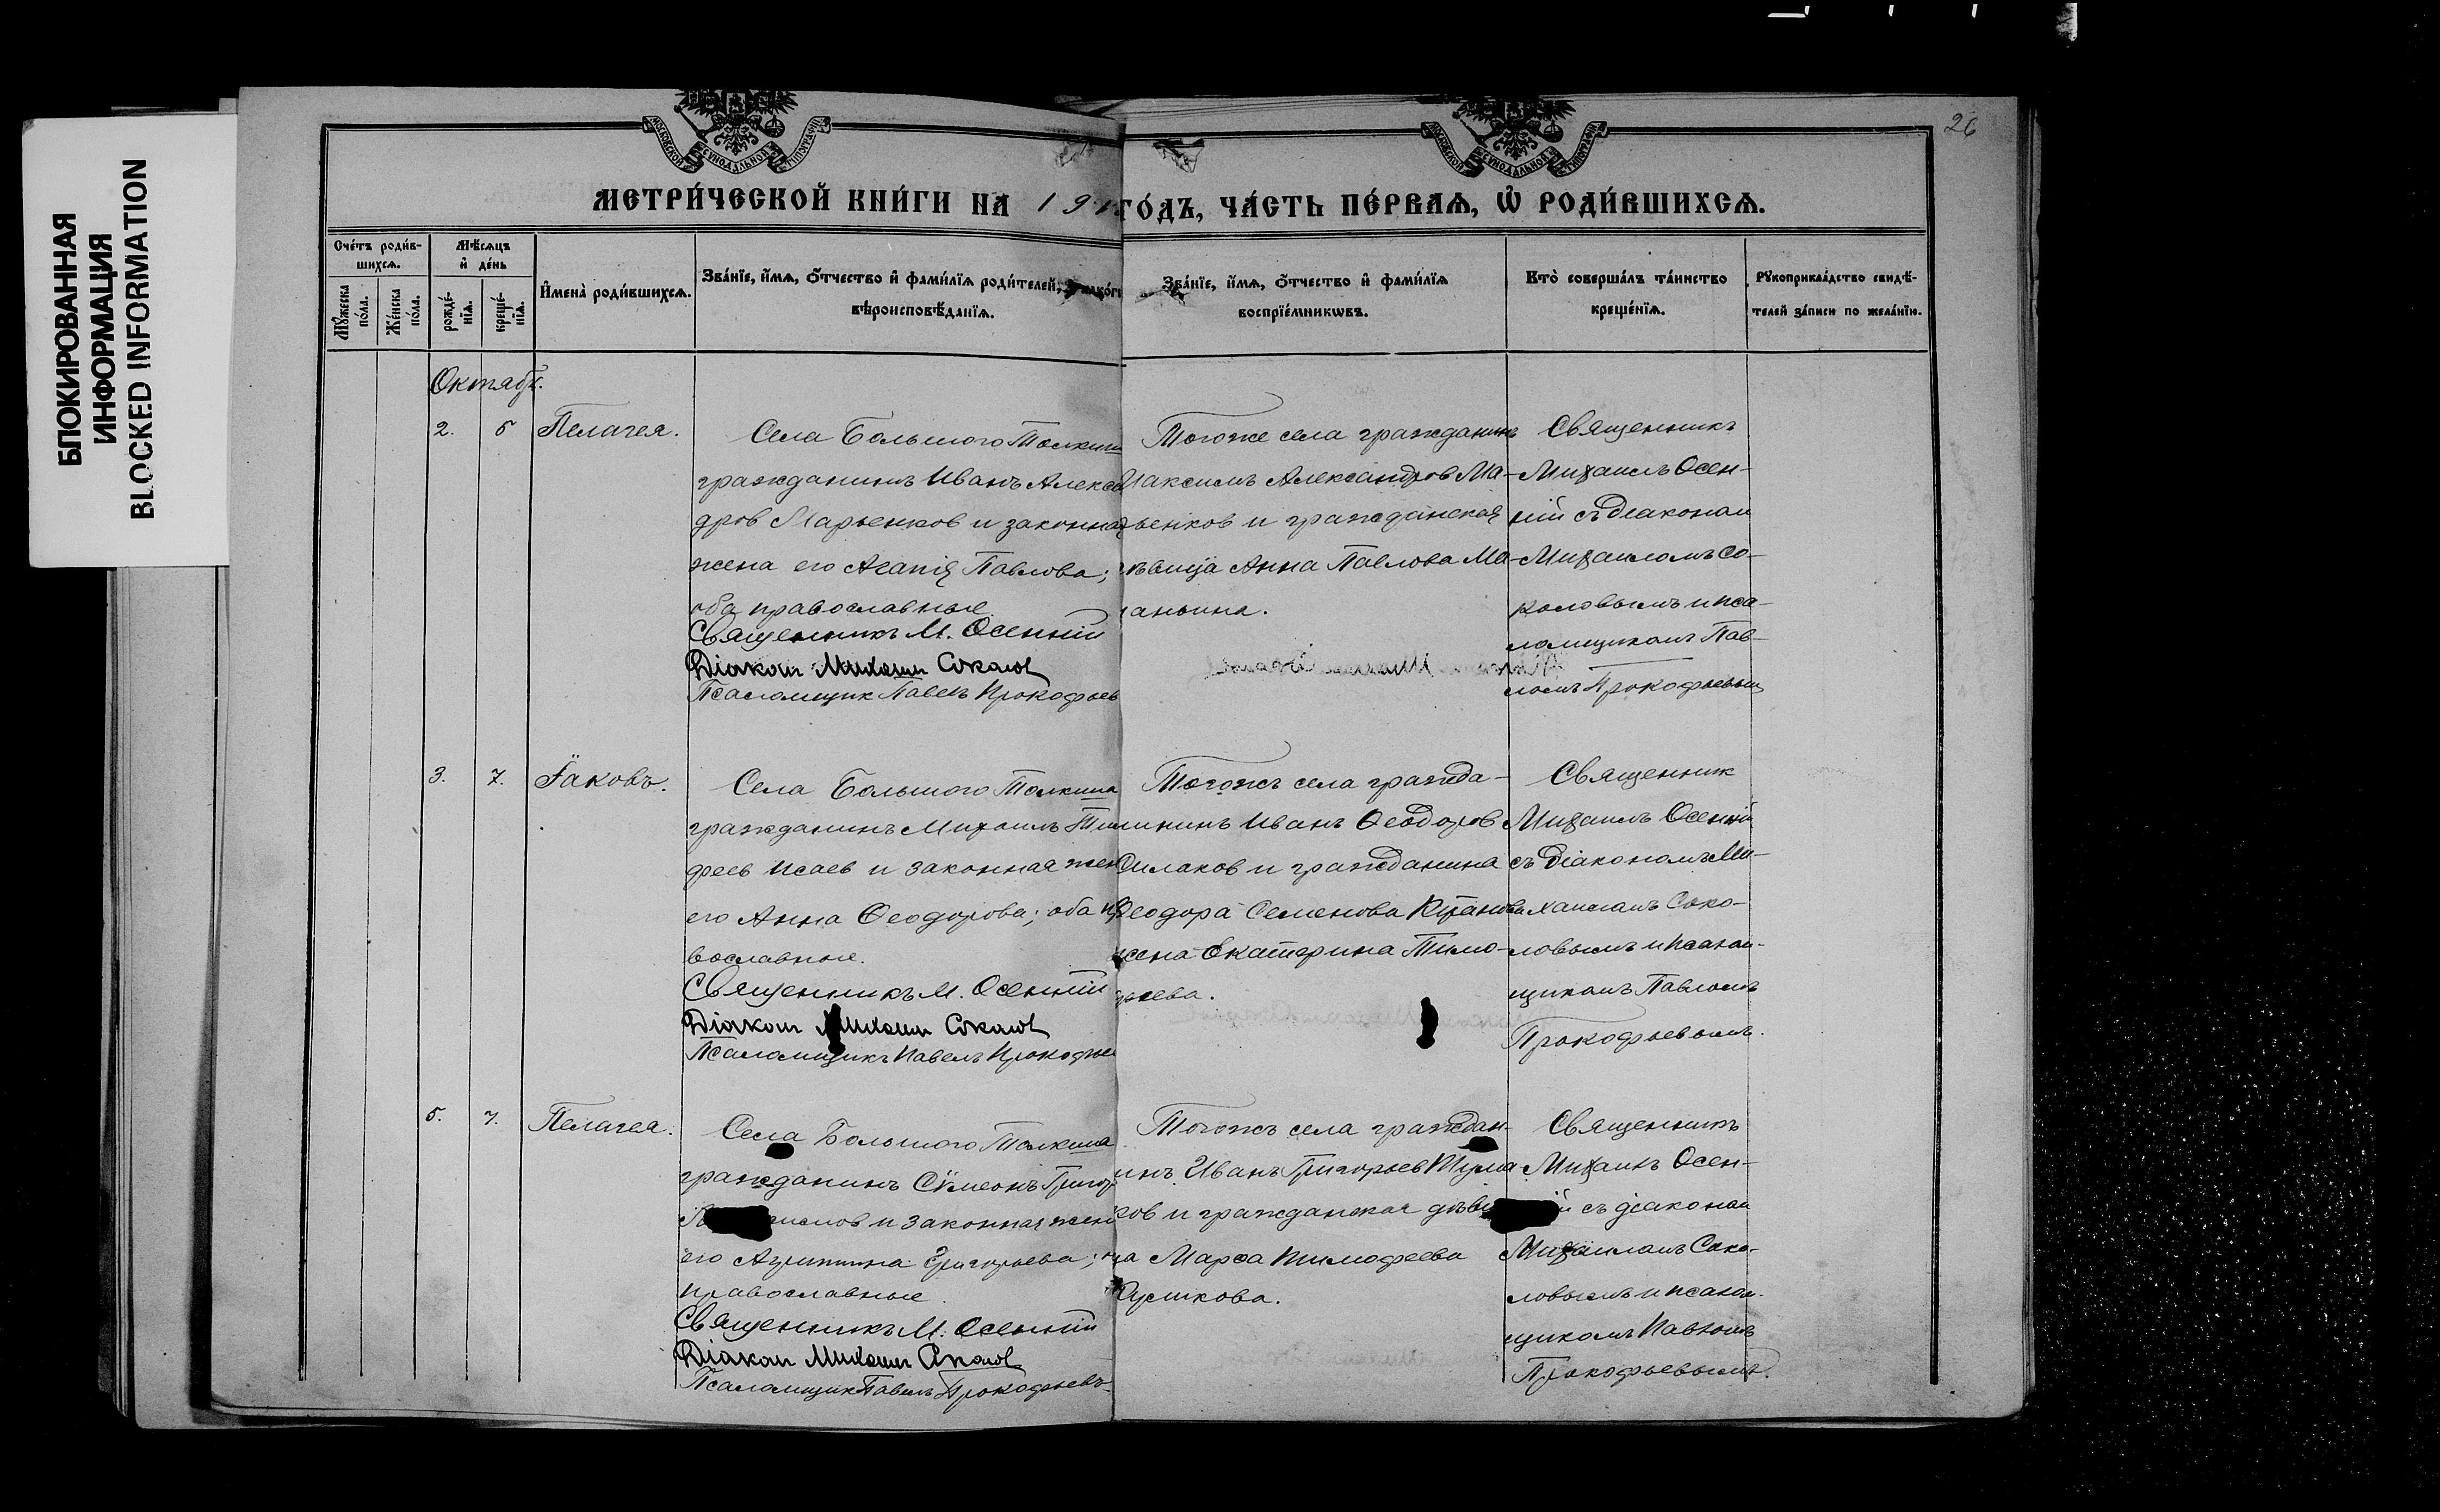 БЛОКИРОВАННАЯ
ИНФОРМАЦИЯ
BLOCKED INFORMATION
26
МОСКОВСКОЙ СѴНОДАЛЬНОЙ ТИПОГРАФІИ
МОСКОВСКОЙ СѴНОДАЛЬНОЙ ТИПОГРАФІИ
МЕТРИ́ЧЕСКОЙ КНИ́ГИ НА 191 ГО́ДЪ, ЧА́СТЬ ПЕ́РВАѦ, Ѡ РОДИ́ВШИХСѦ.
Сче́тъ роди́в-
шихсѧ.
Мꙋ́жеска
по́ла.
Же́нска
по́ла.
Мѣ́сѧцъ
и҆ де́нь
рожде́-
нїѧ.
креще́-
нїѧ.
И҆мена̀ роди́вшихсѧ.
Зва́нїе, и҆́мѧ, ѻ҆́тчество и҆ фами́лїѧ роди́телей,
вѣроисповѣ́данїѧ.
Зва́нїе, и҆́мѧ, ѻ҆́тчество и҆ фами́лїѧ
воспрїе́мникѡвъ.
Кто̀ соверша́лъ та́инство
креще́нїѧ.
Рꙋкоприкла́дство свидѣ́-
телей за́писи по жела́нїю.
Октябр.
2. 5 Пелагея.
Села Большого Толкиш
гражданинъ Иванъ Алексан
дров Марьенков и законная
жена его Агапія Павлова;
оба православные.
Священникъ М. Осенній
Діакон Михаил Соколов
Псаломщик Павелъ Прокофьев
Тогоже села гражданинъ
Максимъ Александров Ма-
рьенков и гражданская
дѣвица Анна Павлова Ма-
аньина.
Священникъ
Михаилъ Осен-
ній съ діаконом
Михаиломъ Со-
коловымъ и пса-
ломщикомъ Пав-
ломъ Прокофьевым
3. 7. Іаковъ.
Села Большого Толкиша
гражданинъ Михаилъ Тимо
феев Исаев и законная жен
его Анна Ѳеодорова; оба пра
вославные.
Священникъ М. Осенній
Діакон Михаил Соколов
Псаломщикъ Павелъ Прокофьев
Тогожъ села гражда-
нинъ Иванъ Ѳеодоров
и гражданина
Ѳеодора Семенова
жена Екатерина Тимо-
феева.
Священник
Михаилъ Осенній
съ діакономъ Ми-
хаиломъ Соко-
ловымъ и псалом-
щикомъ Павломъ
Прокофьевымъ.
5. 7. Пелагея.
Села Большого Толкиша
гражданинъ Сѵмеонъ Григор
и законная жена
его Агриппина Григорьева;
православные.
Священникъ М. Осенній
Діакон Михаил Соколов
Псаломщик Павелъ Прокофьевъ
Тогожъ села граждан-
инъ Иванъ Григорьев
ков и гражданская дѣви
ца Марѳа Тимофеева
Куликова.
Священникъ
Михаилъ Осен-
ій съ діаконом
Михаиломъ Соко-
ловымъ и псалом-
щикомъ Павломъ
Прокофьевымъ.